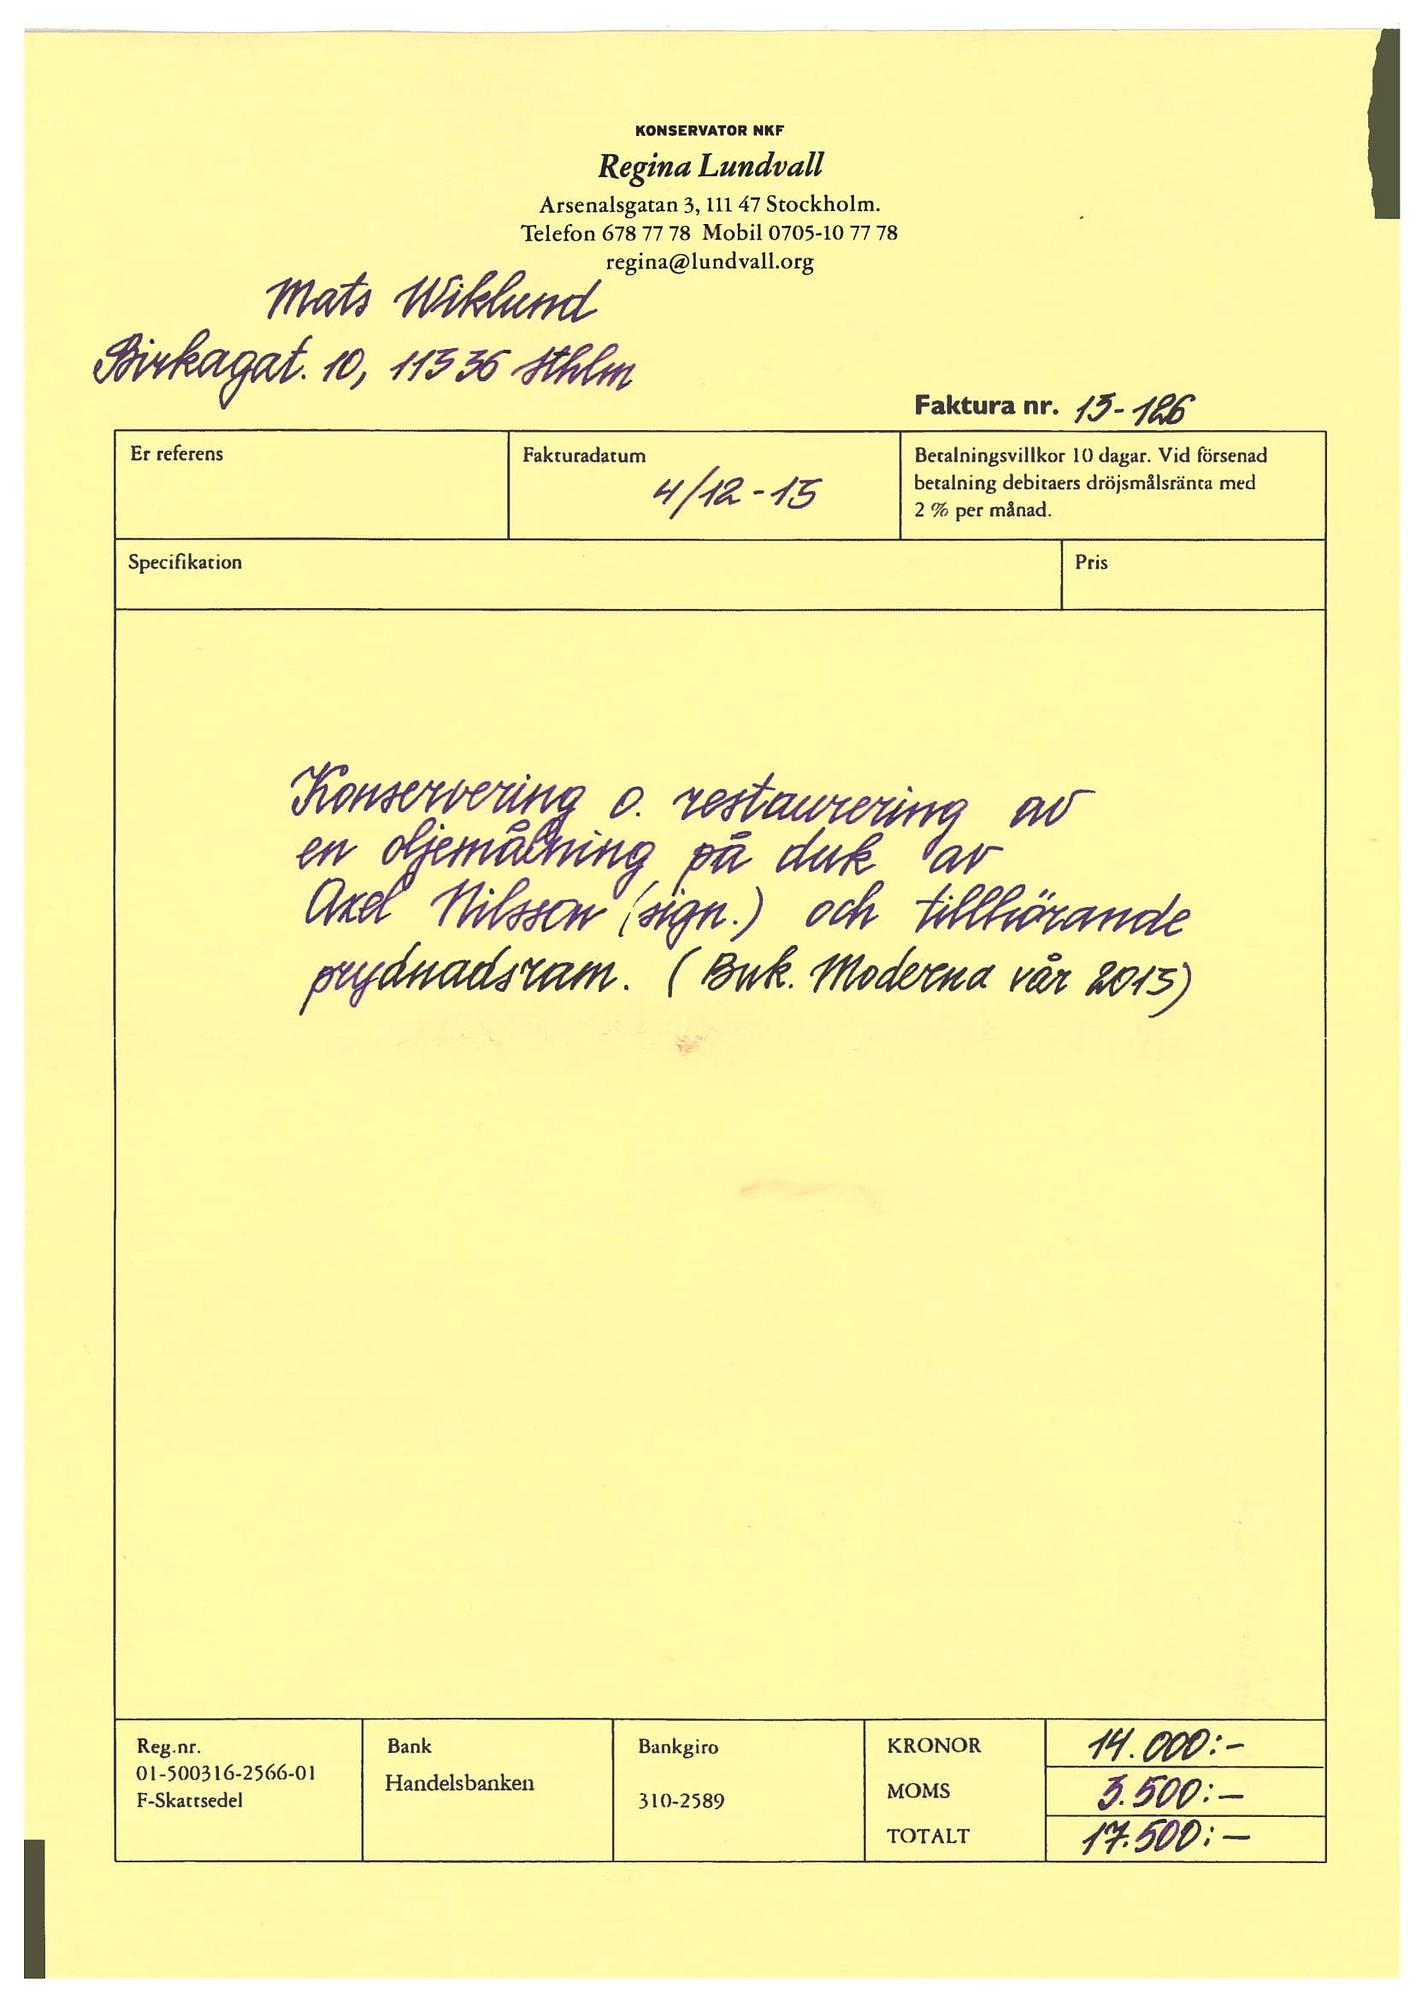 KONSERVATOR NKF
Regina Lundvall
Arsenalsgatan 3, 111 47 Stockholm.
Telefon 678 77 78 Mobil 0705-10 77 78
regina@lundvall.org
Mats Wiklund
Birkagat. 10, 113 36 Sthlm
Faktura nr. 13-126
Er referens
Fakturadatum
4/12-13
Betalningsvillkor 10 dagar. Vid försenad
betalning debitaers dröjsmålsränta med
2 % per månad.
Specifikation
Pris
Konservering o. restaurering av
en oljemålning på duk av
Axel Nilsson (sign.) och tillhörande
prydnadsram. (Buk. Moderna vår 2013)
Reg.nr.
01-500316-2566-01
F-Skattsedel
Bank
Handelsbanken
Bankgiro
310-2589
KRONOR 14.000:-
MOMS 3.500:-
TOTALT 17.500:-